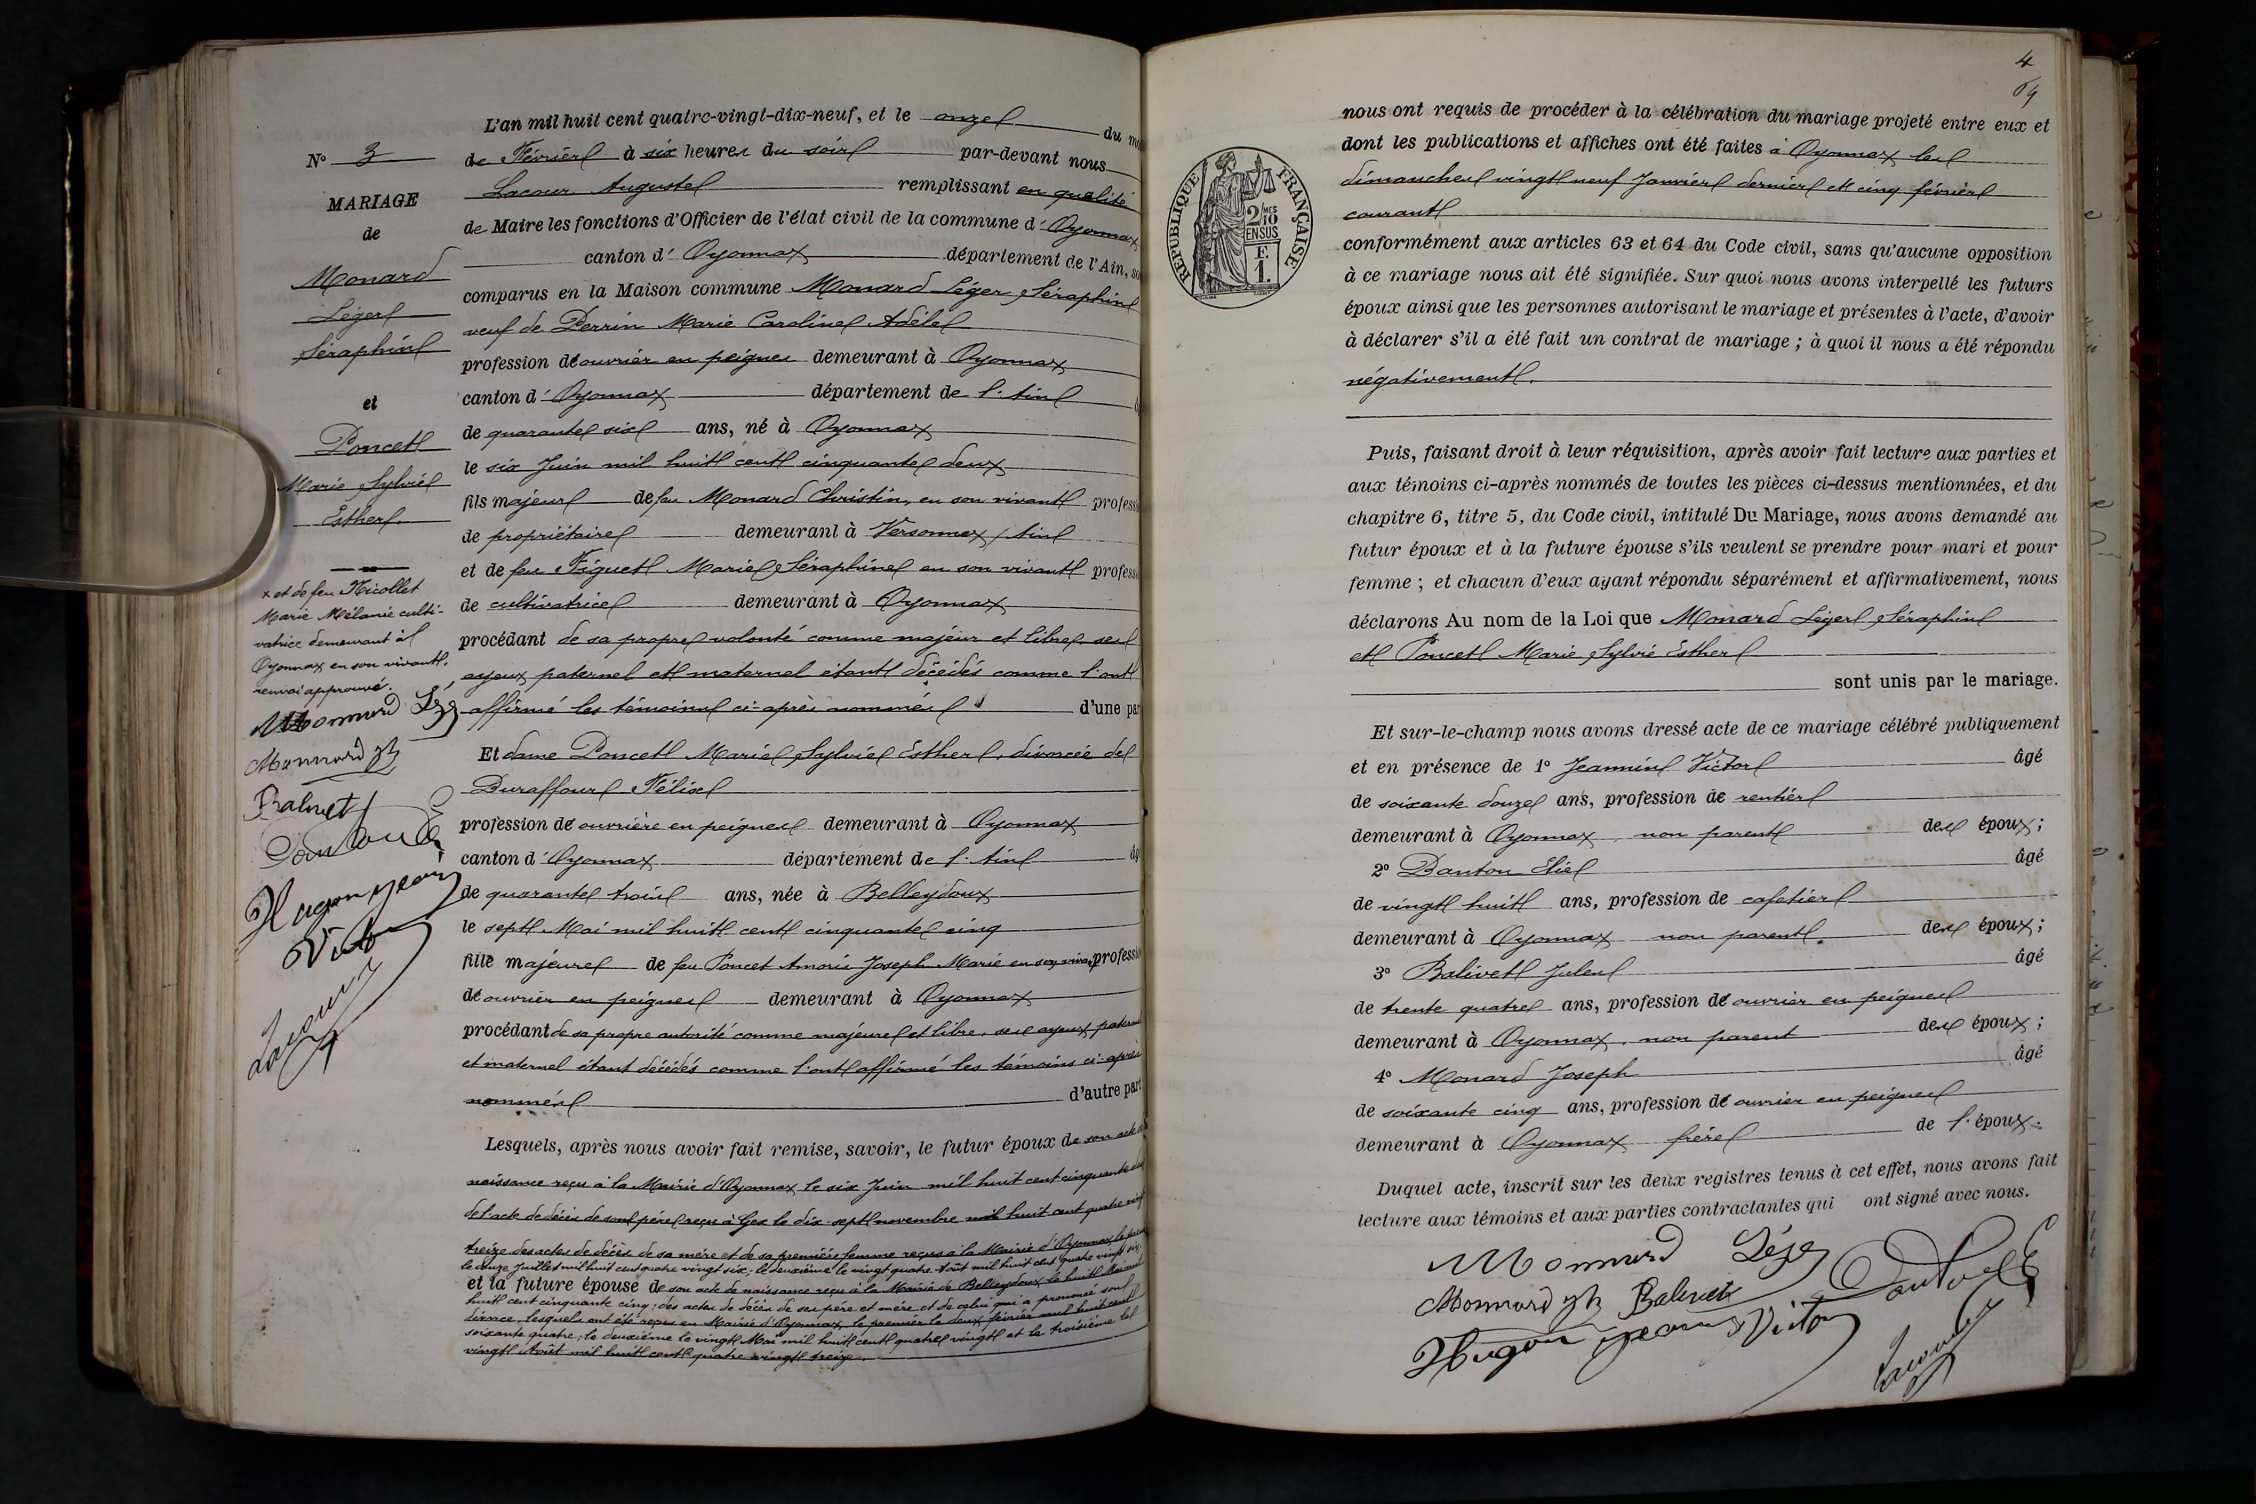 N° 3
MARIAGE
de
Monard
Léger
Séraphin
et
Poncet
Marie Sylvie
Esther.
x et de feu Nicollet
Marie Mélanie culti-
vatrice demeurant à
Oyonnax en son vivant.
renvoi approuvé.
Monnard Léger
Monnard Jh
Balivet
Danton E
Hugon Jeannin
Victor
Lacour
L'an mil huit cent quatre-vingt-dix-neuf, et le onze du
de Février à six heures du soir par-devant nous
Lacour Auguste remplissant en qualité
de Maire les fonctions d'Officier de l'état civil de la commune d'Oyonnax
canton d'Oyonnax département de l'Ain,
comparus en la Maison commune Monard Léger Séraphin
veuf de Perrin Marie Caroline Adèle
profession de ouvrier en peignes demeurant à Oyonnax
canton d'Oyonnax département de l'Ain
de quarante six ans, né à Oyonnax
le six Juin mil huit cent cinquante deux
fils majeur de feu Monard Christin, en son vivant professi
de propriétaire demeurant à Versonnex / Ain
et de feu Figuet Marie Séraphine en son vivant profess
de cultivatrice demeurant à Oyonnax
procédant de sa propre volonté comme majeur et libre, ses
ayeux paternel et maternel étant décédés comme l'ont
affirmé les témoins ci-après nommés d'une par
Et dame Poncet Marie Sylvie Esther, divorcée de
Duraffour Félix
profession de ouvrière en peignes demeurant à Oyonnax
canton d'Oyonnax département de l'Ain âg
de quarante trois ans, née à Belleydoux
le sept Mai mil huit cent cinquante cinq
fille majeure de feu Poncet Amorin Joseph Marie en son vivant professi
de ouvrier en peignes demeurant à Oyonnax
procédant de sa propre autorité comme majeure et libre, ses ayeux paternel
et maternel étant décédés comme l'ont affirmé les témoins ci-après
nommés d'autre part
Lesquels, après nous avoir fait remise, savoir, le futur époux de son acte de
naissance reçu à la Mairie d'Oyonnax le six Juin mil huit cent cinquante deux
de l'acte de décès de son père reçu à Gex le dix-sept novembre mil huit cent quatre vingt
treize des actes de décès de sa mère et de sa première femme reçus à la Mairie d'Oyonnax, le premier
le onze Juillet mil huit cent quatre vingt six; le deuxième le vingt quatre Août mil huit cent quatre vingt six;
et la future épouse de son acte de naissance reçu à la Mairie de Belleydoux le huit Mai mil
huit cent cinquante cinq; des actes de décès de ses père et mère et de celui qui a prononcé son
divorce, lesquels ont été reçus en Mairie d'Oyonnax, le premier le deux février mil huit cent
soixante quatre; le deuxième le vingt Mai mil huit cent quatre vingt et le troisième le
vingt Août mil huit cent quatre vingt treize.
4
nous ont requis de procéder à la célébration du mariage projeté entre eux et
dont les publications et affiches ont été faites à Oyonnax les
dimanches vingt neuf Janvier dernier et cinq février
courant
RÉPUBLIQUE FRANÇAISE
2/10 MES
EN SUS
F.
1.
conformément aux articles 63 et 64 du Code civil, sans qu'aucune opposition
à ce mariage nous ait été signifiée. Sur quoi nous avons interpellé les futurs
époux ainsi que les personnes autorisant le mariage et présentes à l'acte, d'avoir
à déclarer s'il a été fait un contrat de mariage ; à quoi il nous a été répondu
négativement.
Puis, faisant droit à leur réquisition, après avoir fait lecture aux parties et
aux témoins ci-après nommés de toutes les pièces ci-dessus mentionnées, et du
chapitre 6, titre 5, du Code civil, intitulé Du Mariage, nous avons demandé au
futur époux et à la future épouse s'ils veulent se prendre pour mari et pour
femme ; et chacun d'eux ayant répondu séparément et affirmativement, nous
déclarons Au nom de la Loi que Monard Léger Séraphin
et Poncet Marie Sylvie Esther
sont unis par le mariage.
Et sur-le-champ nous avons dressé acte de ce mariage célébré publiquement
et en présence de 1° Jeannin Victor âgé
de soixante douze ans, profession de rentier
demeurant à Oyonnax, non parent des époux ;
2° Danton Elie âgé
de vingt huit ans, profession de cafetier
demeurant à Oyonnax non parent. des époux ;
3° Balivet Jules âgé
de trente quatre ans, profession de ouvrier en peignes
demeurant à Oyonnax, non parent des époux ;
4° Monard Joseph âgé
de soixante cinq ans, profession de ouvrier en peignes
demeurant à Oyonnax frère de l'époux.
Duquel acte, inscrit sur les deux registres tenus à cet effet, nous avons fait
lecture aux témoins et aux parties contractantes qui ont signé avec nous.
Monnard Léger Danton E
Monnard Jh Balivet
Hugon Jeannin Victor
Lacour